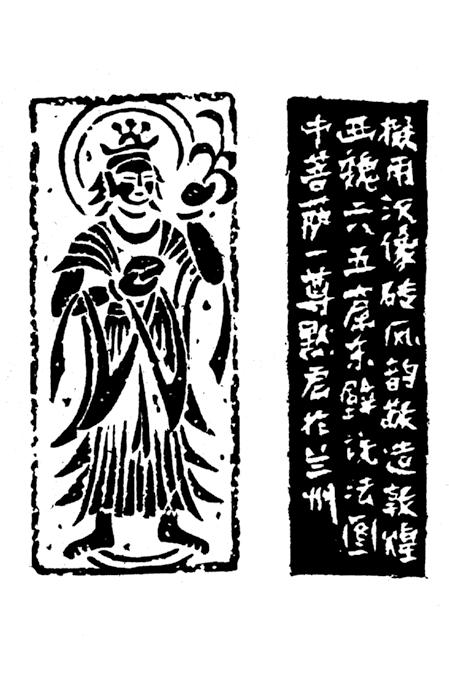 拟用汉像砖风韵敬造敦煌
西魏二八五窟东壁说法图
中菩萨一尊默君于兰州